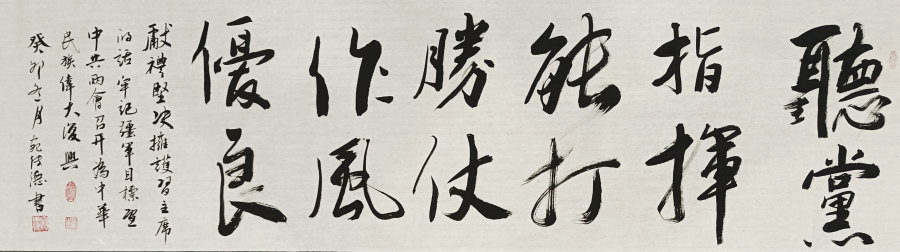 聽黨
指揮
能打
勝仗
作風
優良
獻禮堅决擁護習主席
的話牢記强軍目標聖
中共兩會召开為中華
民族偉大復興
癸卯春月 宛培德書